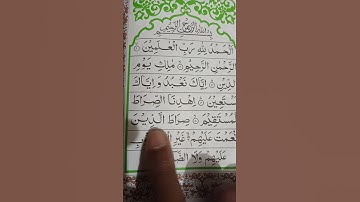 بِسْمِ اللّٰهِ الرَّحْمٰنِ الرَّحِيْمِ
اَلْحَمْدُ لِلّٰهِ رَبِّ الْعٰلَمِيْنَ ۝
الرَّحْمٰنِ الرَّحِيْمِ ۝ مٰلِكِ يَوْمِ
الدِّيْنِ ۝ اِيَّاكَ نَعْبُدُ وَاِيَّاكَ
نَسْتَعِيْنُ ۝ اِهْدِنَا الصِّرَاطَ
الْمُسْتَقِيْمَ ۝ صِرَاطَ الَّذِيْنَ
اَنْعَمْتَ عَلَيْهِمْ غَيْرِ
عَلَيْهِمْ وَلَا